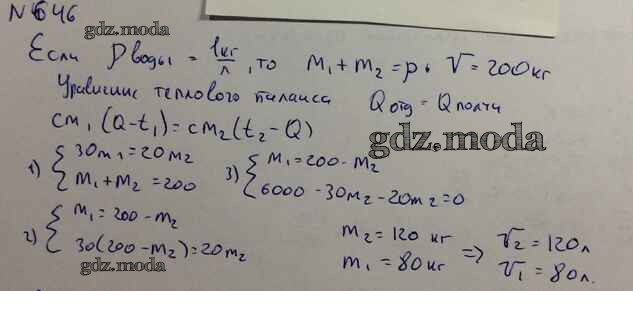 N 646
gdz.moda
Если ρводы = 1кг/л, то m₁ + m₂ = ρ · V = 200 кг
Уравнение теплового баланса Qотд = Qполуч
cm₁ (Q - t₁) = cm₂ (t₂ - Q)
gdz.moda
1) { 30m₁ = 20m₂
m₁ + m₂ = 200
3) { m₁ = 200 - m₂
6000 - 30m₂ - 20m₂ = 0
2) { m₁ = 200 - m₂
30(200 - m₂) = 20m₂
gdz.moda
m₂ = 120 кг
m₁ = 80 кг
=> V₂ = 120 л
V₁ = 80 л.